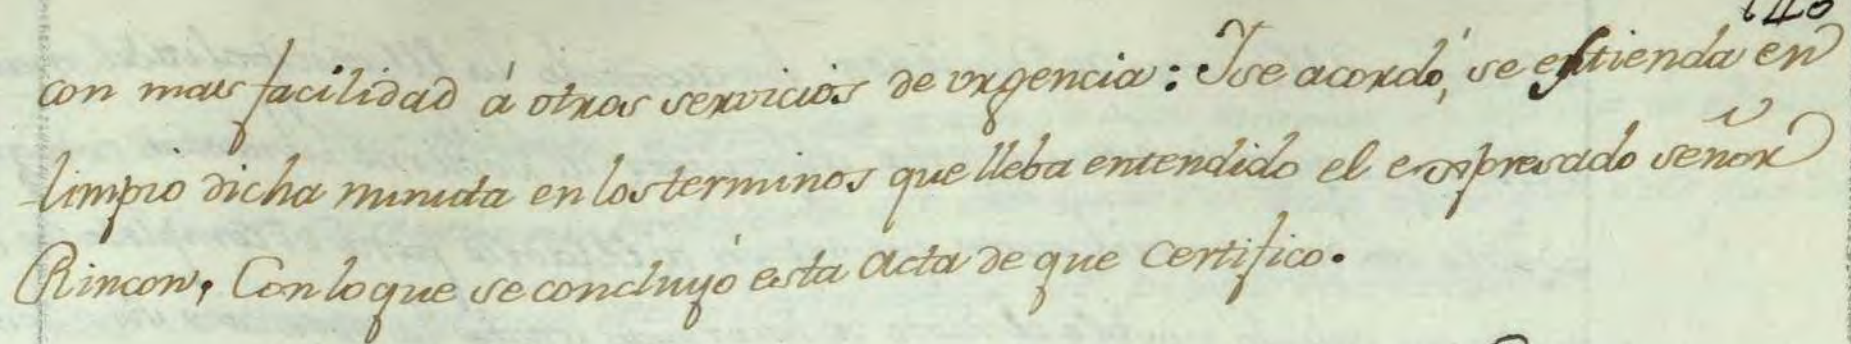 con mas facilidad á otros servicios de urgencia: Y se acordó, se estienda en
limpio dicha minuta en los terminos que lleba entendido el expresado señor
Rincon, Con lo que se concluyó esta Acta de que Certifico.